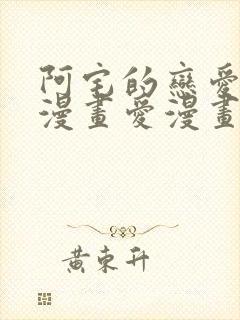 阿宅的戀愛
漫畫愛漫畫
黃東升